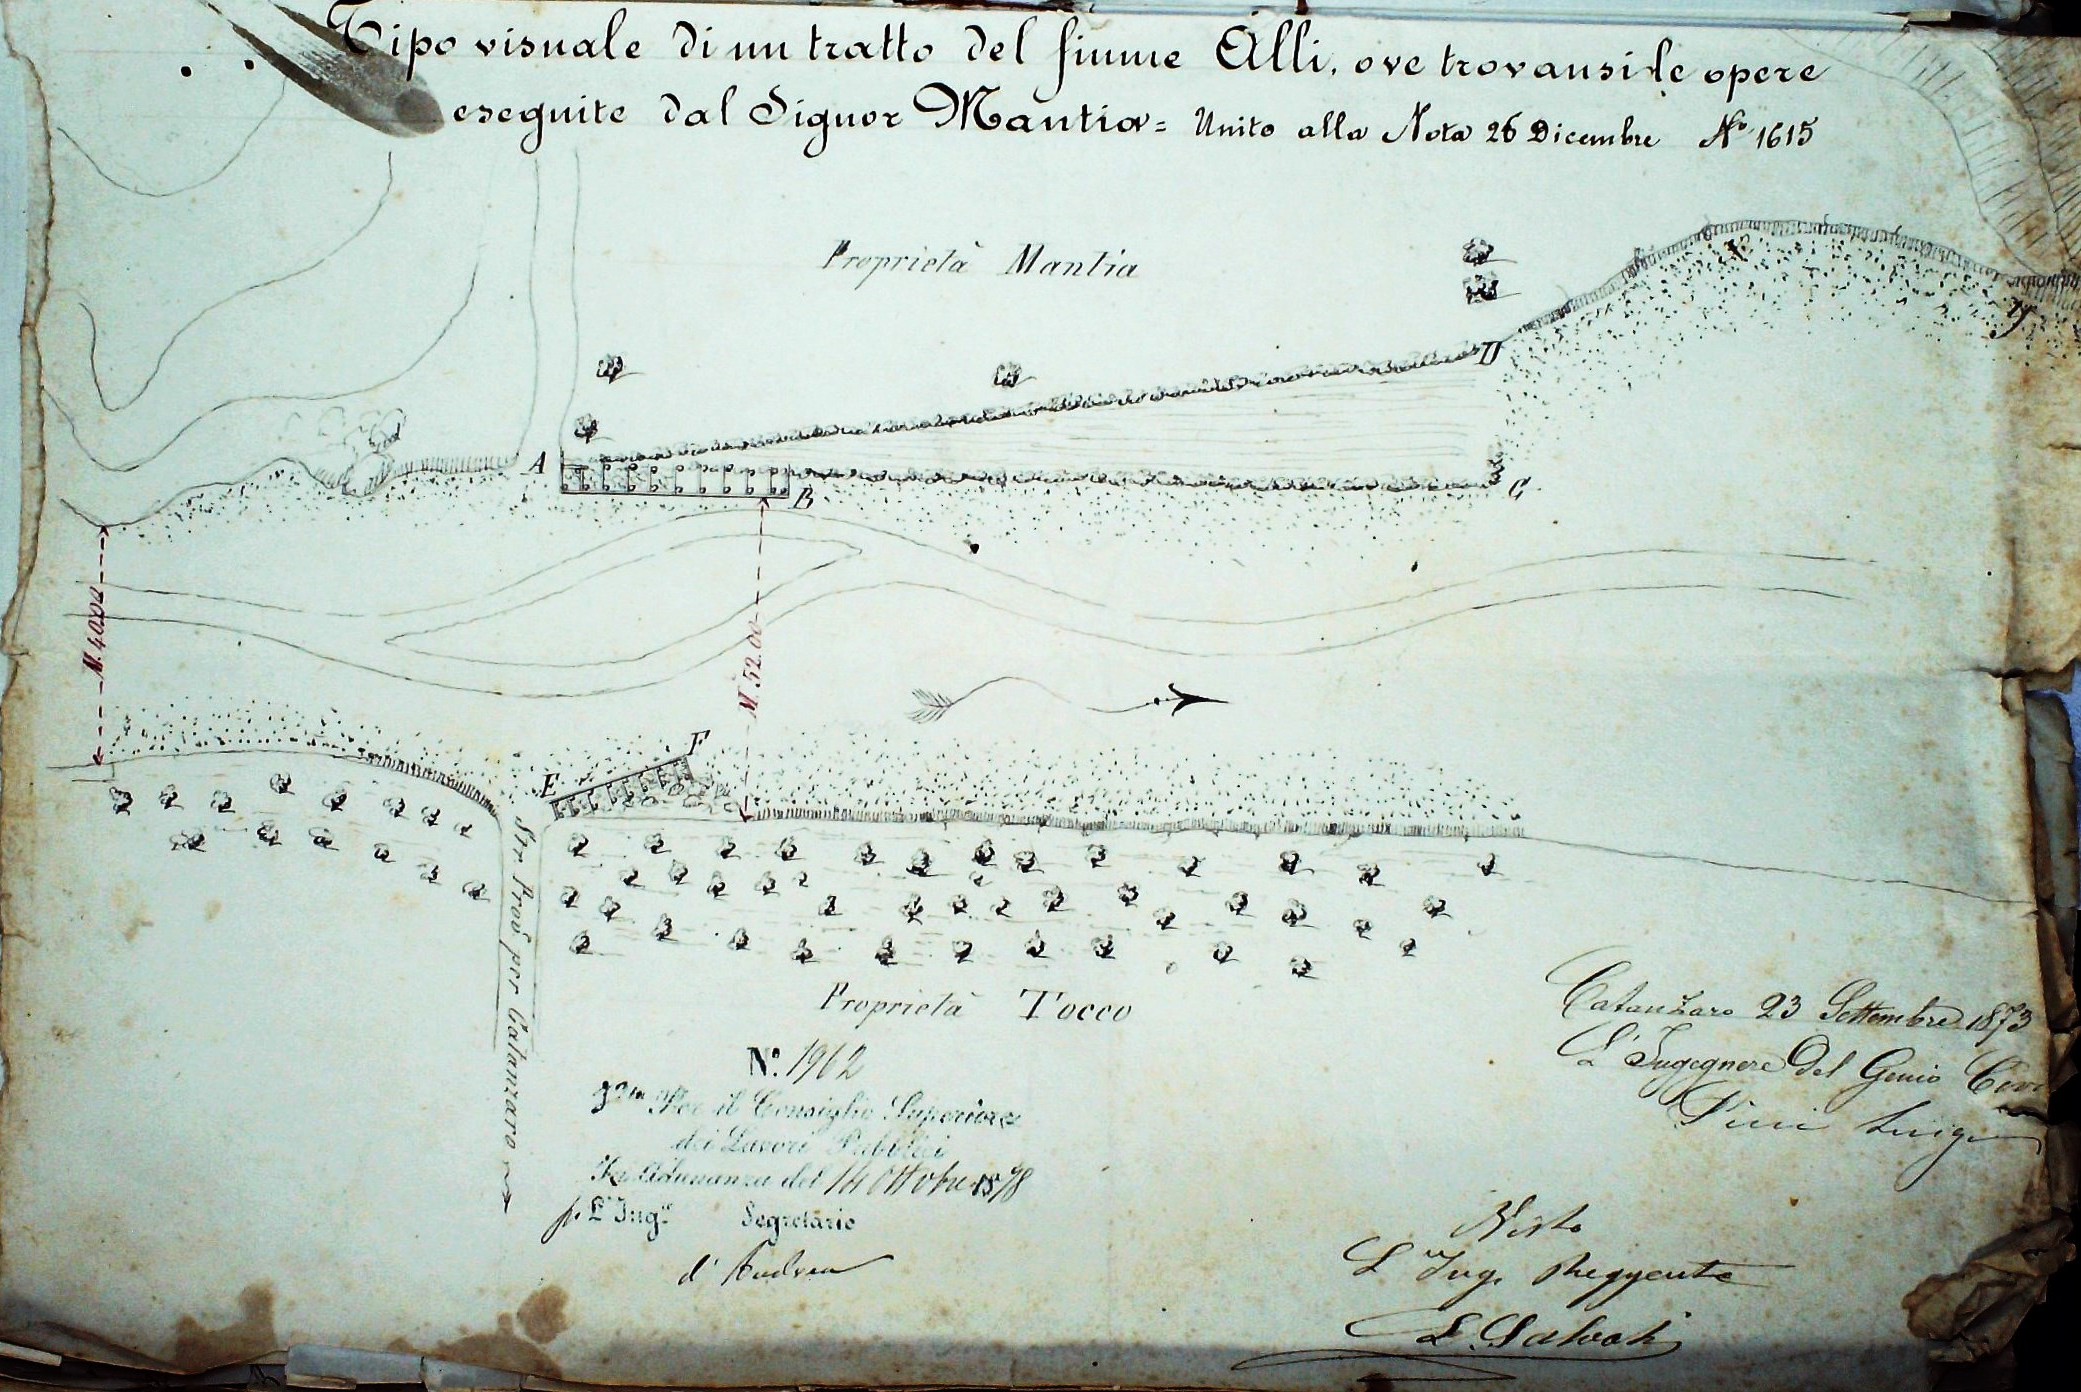 Tipo visuale di un tratto del fiume Alli, ove trovansi le opere
eseguite dal Signor Mantia = Unito alla Nota 26 Dicembre No 1615
Proprietà Mantia
D
A
B
C
M. 40.00
M. 52.00
F
E
Str. Prov. per Catanzaro
Proprietà Tocco
N°. 1962
Per il Consiglio Superiore
dei Lavori Pubblici
In Adunanza del 14 Ottobre 1878
p. L'Ingre Segretario
d'Andrea
Catanzaro 23 Settembre 1873
L'Ingegnere del Genio
Luigi
Visto
L'Ing. Reggente